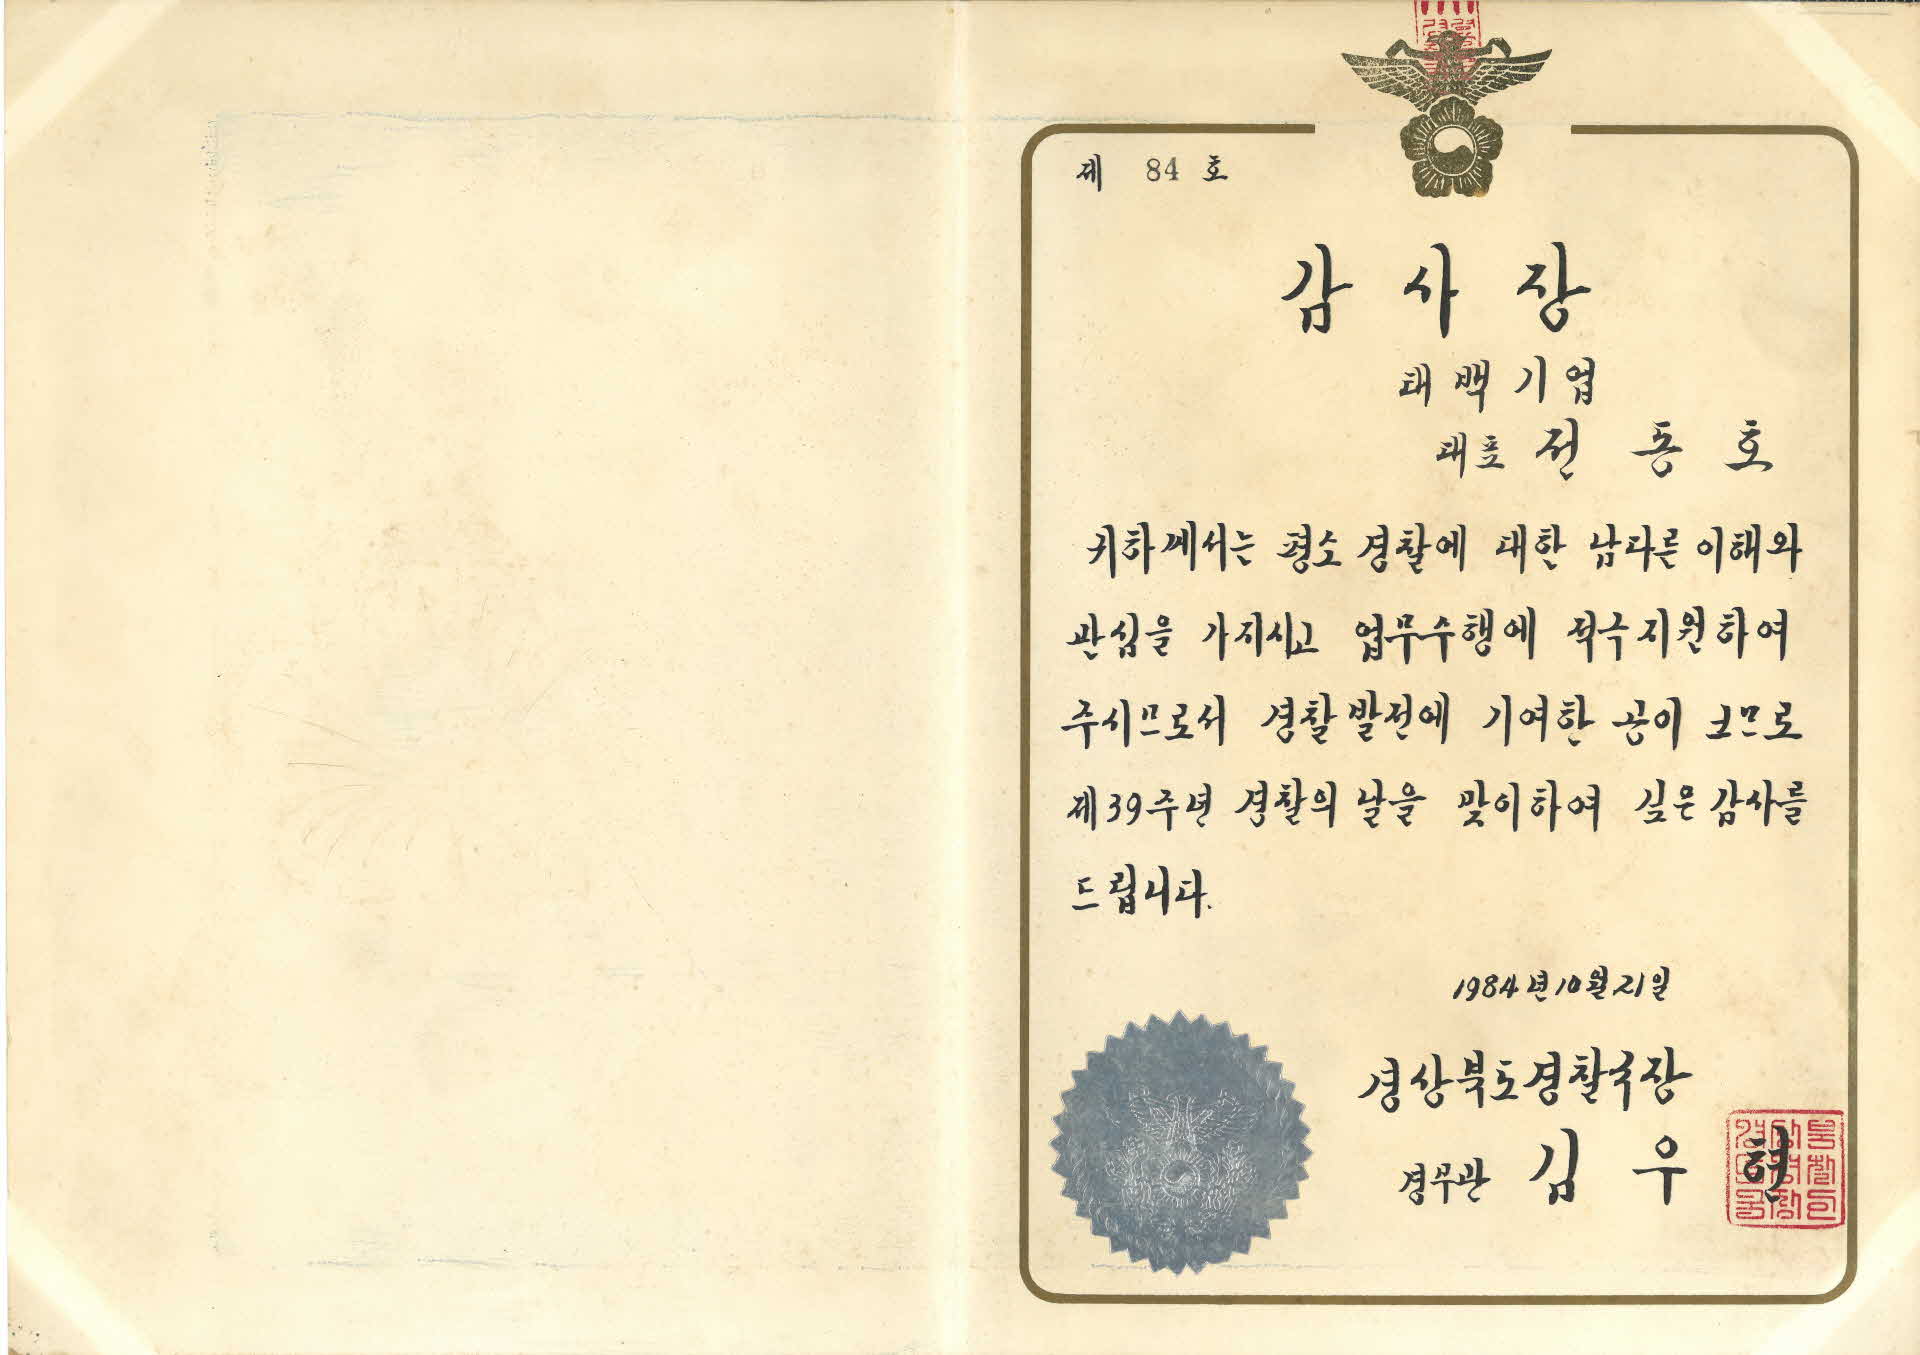 제 84 호
감사장
태백기업
대표 전동호
귀하께서는 평소 경찰에 대한 남다른 이해와
관심을 가지시고 업무수행에 적극지원하여
주시므로서 경찰발전에 기여한 공이 크므로
제39주년 경찰의 날을 맞이하여 깊은 감사를
드립니다.
1984년 10월 21일
경상북도경찰국장
경무관 김우현